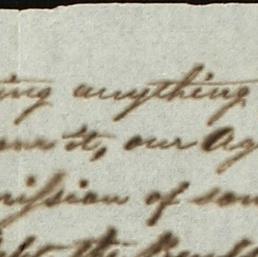 ing anything
it, our Ag
mission of som
the